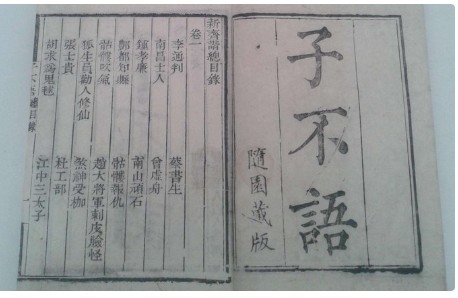 子不語
隨園藏版
新齊諧總目錄
卷一
李通判 蔡書生
南昌士人 曾虛舟
鍾孝廉 南山頑石
酆都知縣 骷髏報仇
骷髏吹氣 趙大將軍刺皮臉怪
狐生員勸人修仙 煞神受枷
張士貴 杜工部
胡求為鬼毬 江中三太子
子不語總目錄